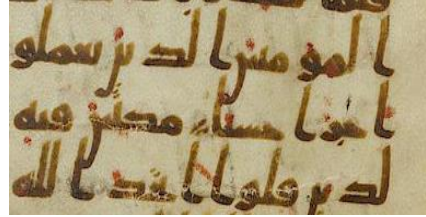 المومنين الذين يعملو
اجرا حسنا مكثين فيه
لذين قالوا اتخذ الله